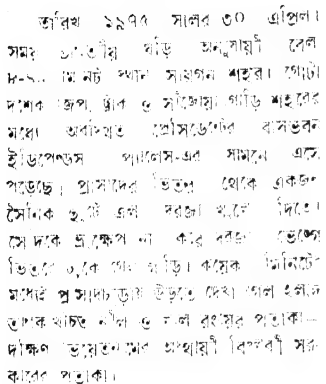 তারিখ ১৯৭৫ সালের ৩০ এপ্রিল।
সময় ভারতীয় ঘড়ি অনুযায়ী বেলা
মিনিট স্থান সায়গন শহর। গোটা
দশেক জীপ, ট্রাক ও সাঁজোয়া গাড়ি শহরের
মধ্যে অবস্থিত প্রেসিডেন্টের বাসভবন
ইণ্ডিপেণ্ডেন্স প্যালেস-এর সামনে এসে
পড়েছে। প্রাসাদের ভিতর থেকে একজন
সৈনিক ছুটে এল দরজা খুলে দিতে।
সেদিকে ভ্রূক্ষেপ না করে দরজা ভেঙ্গে
ভিতরে ঢুকে গেল গাড়ি। কয়েক মিনিটের
মধ্যেই প্রাসাদচূড়ায় উড়তে দেখা গেল হলুদ
তারকা খচিত নীল ও লাল রংয়ের পতাকা—
দক্ষিণ ভিয়েতনামের অস্থায়ী বিপ্লবী সর-
কারের পতাকা।